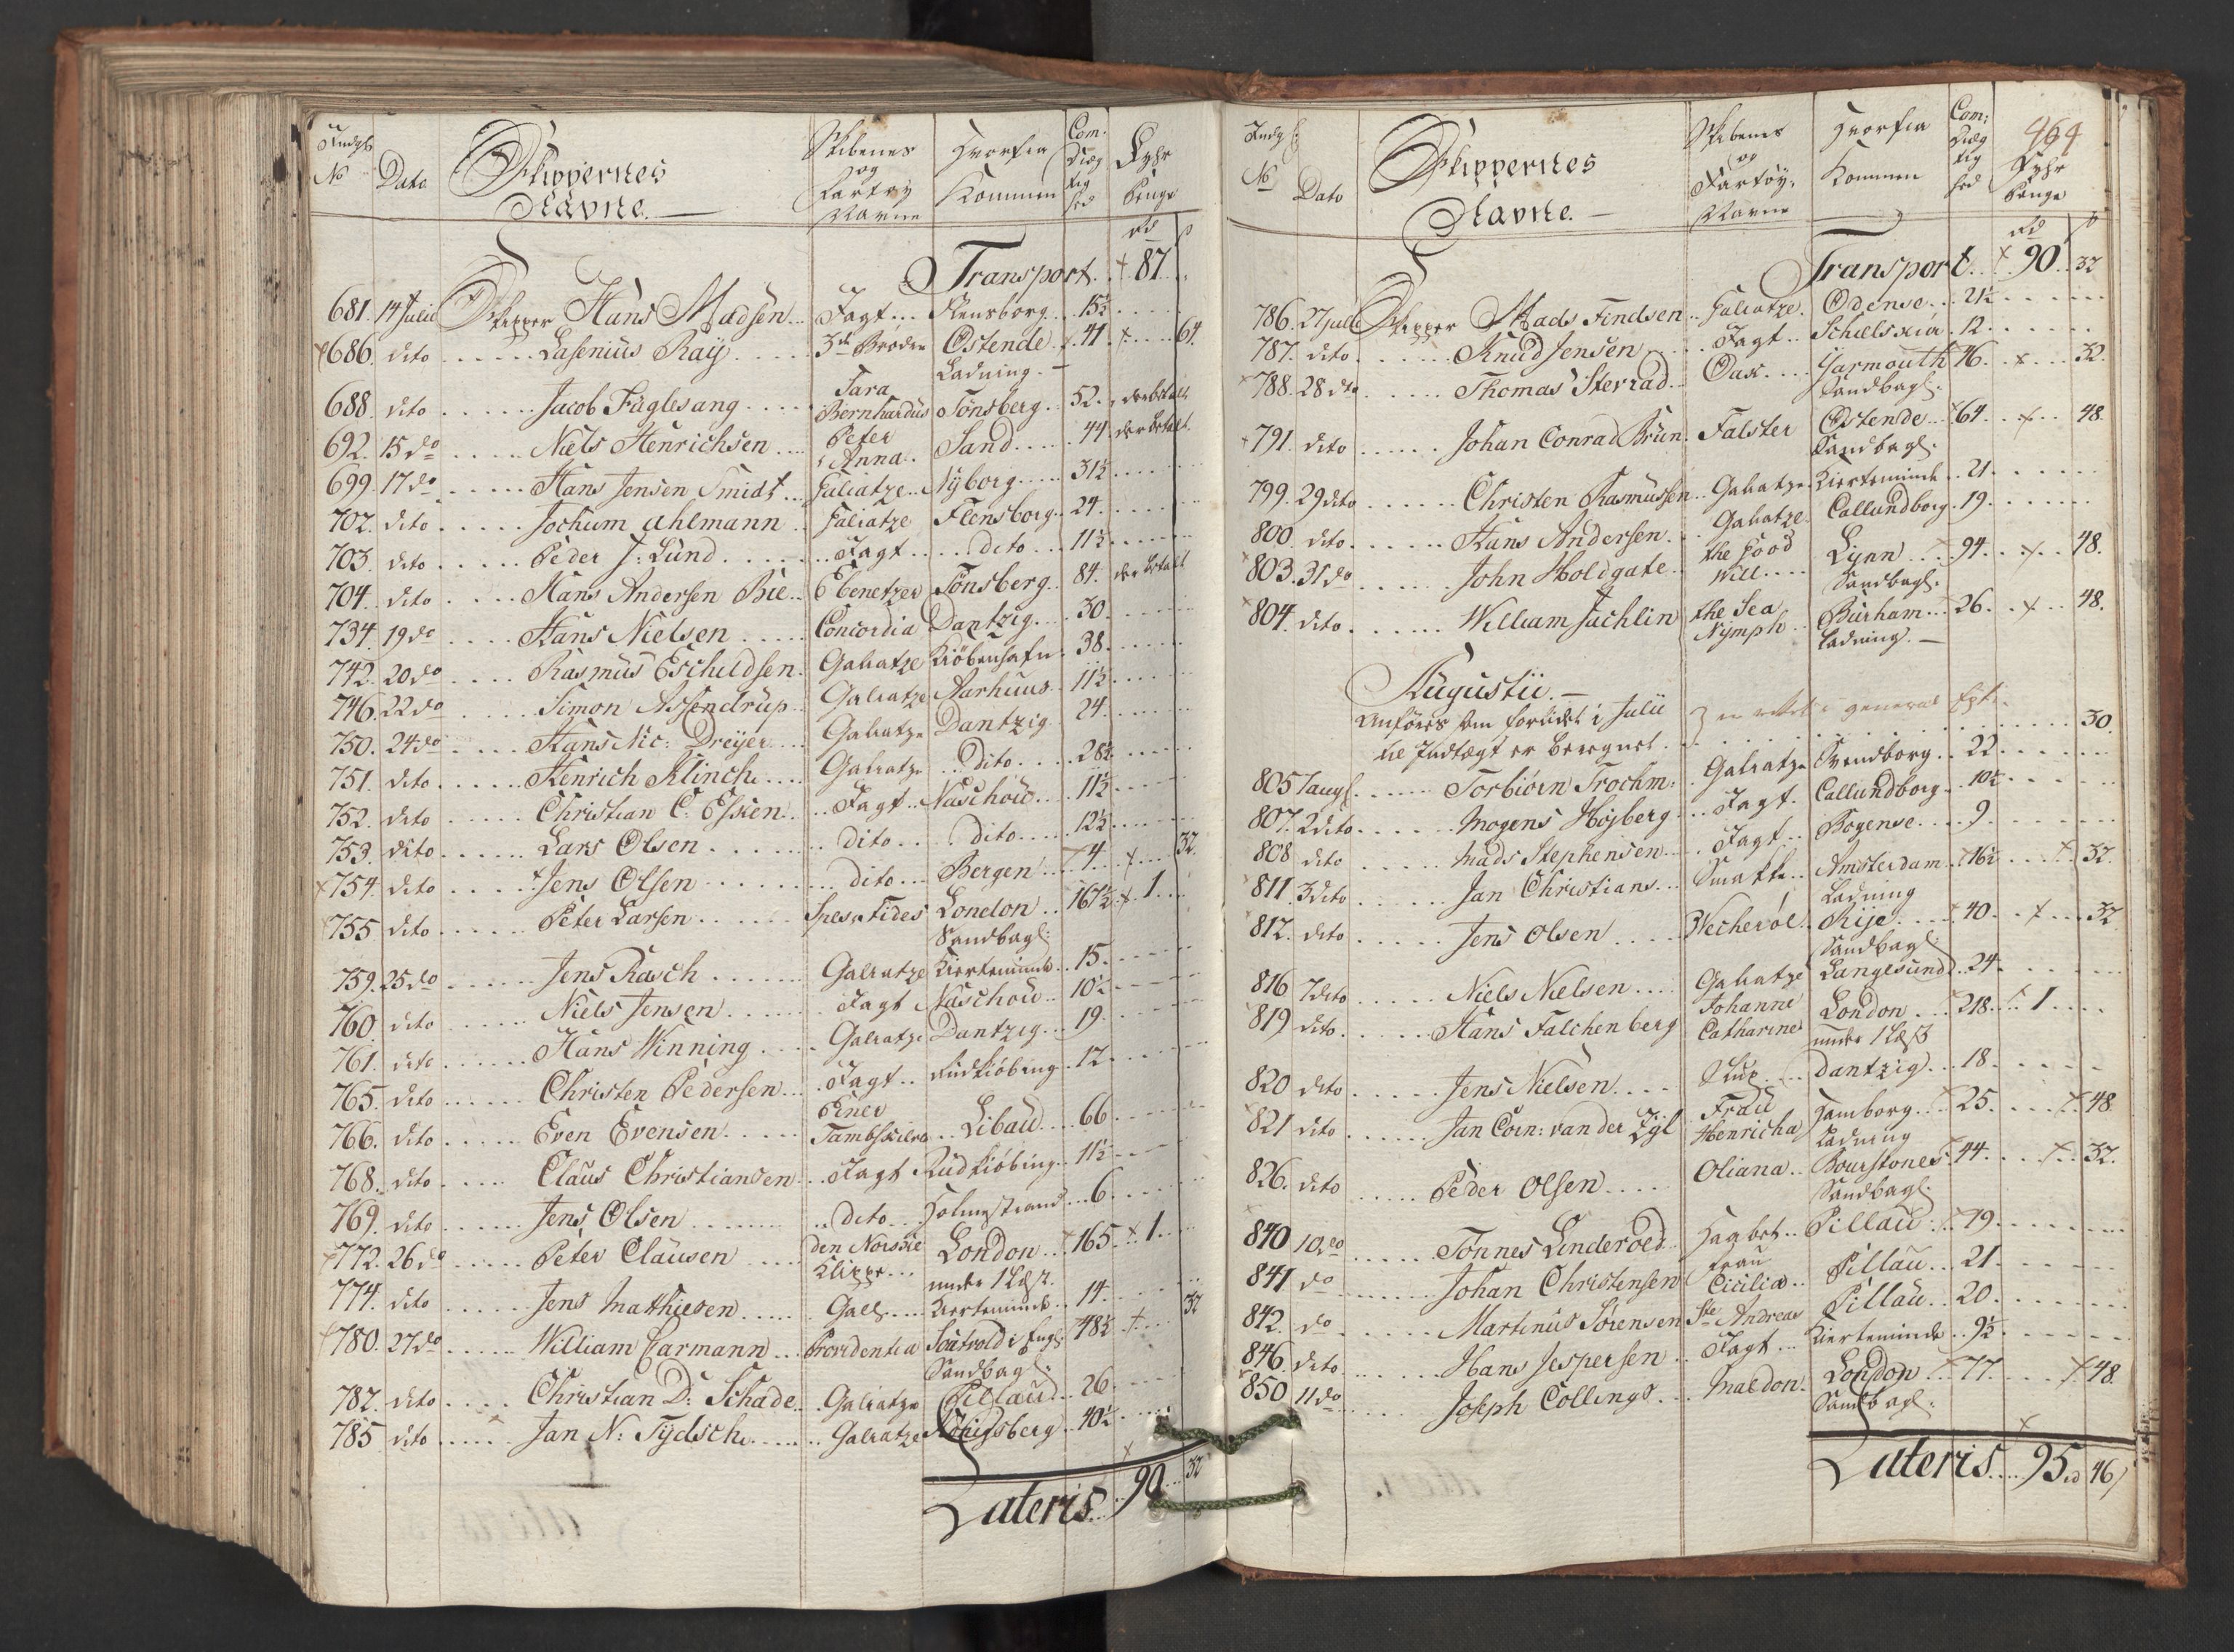 Indg:
No Dato Skippernes Navne. Skibenes og Fartøy Navne Hvorfra Kommen Com: Dræg tig hed Fyhr Penge
rd ß
Transport. 87.
681. 14 Julii Skipper Hans Madsen Jagt Flensborg 15½
686. dito Lasenius Raÿ 3de Brødre Ostende 41 64.
Ladning.
688. dito Jacob Fuglesang Sara Bernhardus Tønsberg 52. der betalt
692. 15do Niels Henrichsen Peter Anna Sand 44 der betalt
699. 17do Hans Jensen Smidt Galiatze Nÿborg 31½
702. dito Jochum Ahlmann Galiatze Flensborg 24
703. dito Peder J: Lund Jagt dito 11½
704. dito Hans Andersen Bie Ebenetzer Tønsberg 84. der betalt
734. 19do Hans Nielsen Concordia Dantzig 30
742. 20do Rasmus Eschildsen Galiatze Kiöbenhafn 38
746. 22do Simon Assendrup Galiatze Aarhuus 11½
750. 24do Hans Nic: Dreÿer Galiatze Dantzig 24
751. dito Henrich Klinch Galiatze dito 28½
752. dito Christian C. Esken Jagt Naschou 11½
753. dito Lars Olsen dito dito 12½
754. dito Jens Olsen dito Bergen 4 32.
755 dito Peter Larsen Spes et Fides London 167½ 1
Sandbagl:
759. 25do Jens Rasch Galiatze Kierteminde 15
760 dito Niels Jensen Jagt Naschou 10½
761. dito Hans Winning Galiatze Dantzig 19
765. dito Christen Pedersen Jagt Rudkiöbing 12
766. dito Even Evensen Einer Tambskielver Libau 66
768. dito Claus Christiansen Jagt Rudkiöbing 11½
769. dito Jens Olsen dito Holmestrand 6
772. 26do Peter Clausen den Norske Klippe London 165 1
under 1 Læst.
774. dito Jens Mathiesen Gall: Kierteminde 14
780. 27do William Carmann Providentia Soutvold i Engl: 48½ 32
Sandbagl:
782. dito Christian D: Schade Galiatze Pillau 26
785 dito Jan N: Tÿdsch Galiatze Königsberg 40½
Lateris 90 32
464
Indg:
No Dato Skippernes Navne. Skibenes og Fartøy Navne Hvorfra Kommen Com: Dræg tig hed Fyhr Penge
rd ß
Transport 90 32
786. 27 Julii Skipper Mads Findsen Galiatze Odense 21½
787. dito Knud Jensen Jagt Schielskiör 12
788. 28 dto Thomas Sterrad Oax Yarmouth 46 32.
Sandbagl.
791. dito Johan Conrad Brun Falster Ostende 64 48.
Sandbagl.
799. 29 dito Christen Rasmussen Galiatze Kierteminde 21
800. dito Hans Andersen Galiatze Callundborg 19
803. 31do John Holdgate the Good Will Lÿnn 94 48.
Sandbagl.
804. dito William Jachlin the Sea Nÿmph Burham 26 48.
Ladning.
Augustii.
Anföres som forlidt i Julii
til Indtægt er beregnet 30.
805 1 aug: Torbiörn Trochm: Galiatze Svendborg 22
807. 2 dito Mogens Höjberg Jagt Callundborg 10½
808 dito Mads Stephensen Jagt Bogense 9
811. 3 dito Jan Christians Smakke Amsterdam 16½ 32.
Ladning
812. dito Jens Olsen Wecheröe Rije 40 32
Sandbagl
816 7 dito Niels Nielsen Galiatze Langesund 24
819 dito Hans Falchenberg Johanne Catharine London 218 1
under 1 Læst
820 dito Jens Nielsen Slup Dantzig 18
821 dito Jan Corn: van der Zÿl Frau Henricha Hamborg 25 48
Ladning
826. dito Peder Olsen Oliana Bourstones 44 32.
Sandbagl.
840 10do Tönnes Linderoed Haabet Pillau 79
841 do Johan Christensen Frau Cicilia Pillau 21
842. do Martinus Sörensen Ste Andreas Pillau 20
846. dito Hans Jespersen Jagt Kierteminde 9½
850 11do Joseph Collings Maldon London 77 48
Sandbagl.
Lateris 95 rd 46